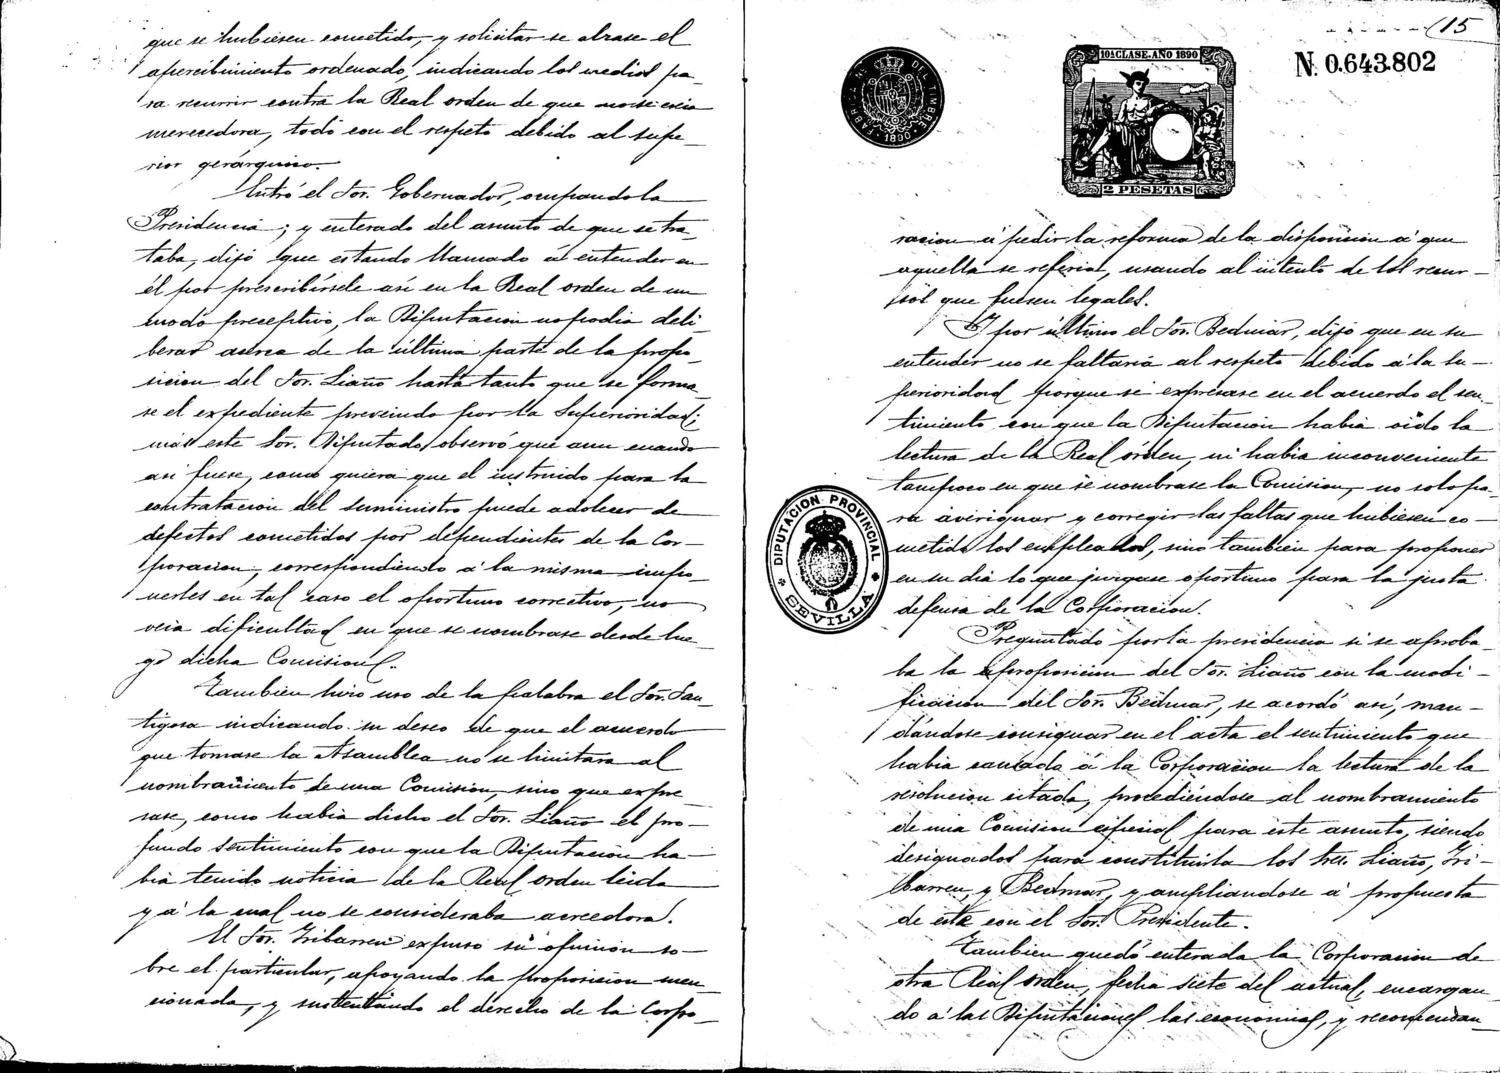 que se hubiesen cometido, y solicitar se alzase el
apercibimiento ordenado, indicando los medios pa-
ra recurrir contra la Real orden de que no se creia
merecedora, todo con el respeto debido al supe-
rior gerárquico.
Entró el Sor. Gobernador, ocupando la
Presidencia; y enterado del asunto de que se tra-
taba, dijó que estando llamado á entender en
él por prescribírsele así en la Real orden de un
modo preceptivo, la Diputacion no podia deli-
berar acerca de la última parte de la propo-
sicion del Sor. Liaño hasta tanto que se forma-
se el expediente prevenido por la Superioridad;
más este Sor. Diputado observó que aun cuando
así fuese, como quiera que el instruido para la
contratacion del suministro puede adolecer de
defectos cometidos por dependientes de la Cor-
poracion, correspondiendo á la misma impo-
nerles en tal caso el oportuno correctivo, no
veia dificultad en que se nombrase desde lue-
go dicha Comision.
Tambien hizo uso de la palabra el Sor. San-
tigosa indicando su deseo de que el acuerdo
que tomase la Asamblea no se limitara al
nombramiento de una Comision, sino que expre-
sase, como habia dicho el Sor. Liaño el pro-
fundo sentimiento con que la Diputacion ha-
bia tenido noticia de la Real orden leida
y á la cual no se consideraba acreedora.
El Sor. Iribarren expuso su opinion so-
bre el particular, apoyando la proposicion men-
cionada, y sustentando el derecho de la Corpo-
(15
FABRICA NL. DEL TIMBRE
1890
10ª CLASE. AÑO 1890
2 PESETAS
N. 0.643.802
racion á pedir la reforma de la disposicion á que
aquella se referia, usando al intento de los recur-
sos que fuesen legales.
Y por último el Sor. Bedmar, dijó que en su
entender no se faltaria al respeto debido á la su-
perioridad porque se expresase en el acuerdo el sen-
timiento con que la Diputacion habia oido la
lectura de la Real órden, ni habia inconveniente
tampoco en que se nombrase la Comision, no solo pa-
ra averiguar y corregir las faltas que hubiesen co-
metido los empleados, sino tambien para proponer
en su dia lo que juzgase oportuno para la justa
defensa de la Corporacion.
DIPUTACION PROVINCIAL
SEVILLA
Preguntado por la presidencia si se aproba-
ba la proposicion del Sor. Liaño con la modi-
ficacion del Sor. Bedmar, se acordó así, man-
dándose consignar en el acta el sentimiento que
habia causado á la Corporacion la lectura de la
resolucion citada, procediéndose al nombramiento
de una Comision especial para este asunto, siendo
designados para constituirla los Sres. Liaño, Iri-
barren y Bedmar, y ampliandose á propuesta
de este con el Sor. Presidente.
Tambien quedó enterada la Corporacion de
otra Real orden, fecha siete del actual, encargan-
do á las Diputaciones las economias, y recomendan-